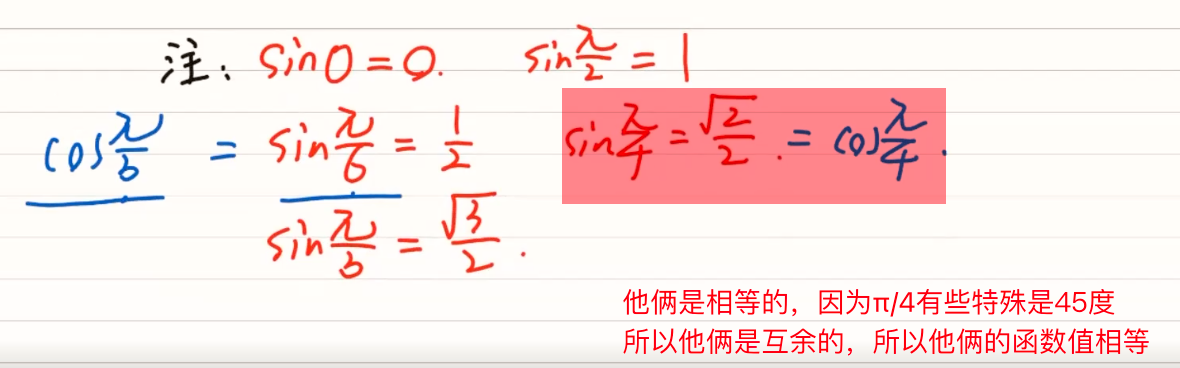 注: sin0=0. sinπ/2=1
cosπ/3 = sinπ/6 = 1/2 sinπ/4=√2/2. = cosπ/4.
sinπ/3 = √3/2.
他俩是相等的，因为π/4有些特殊是45度
所以他俩是互余的，所以他俩的函数值相等